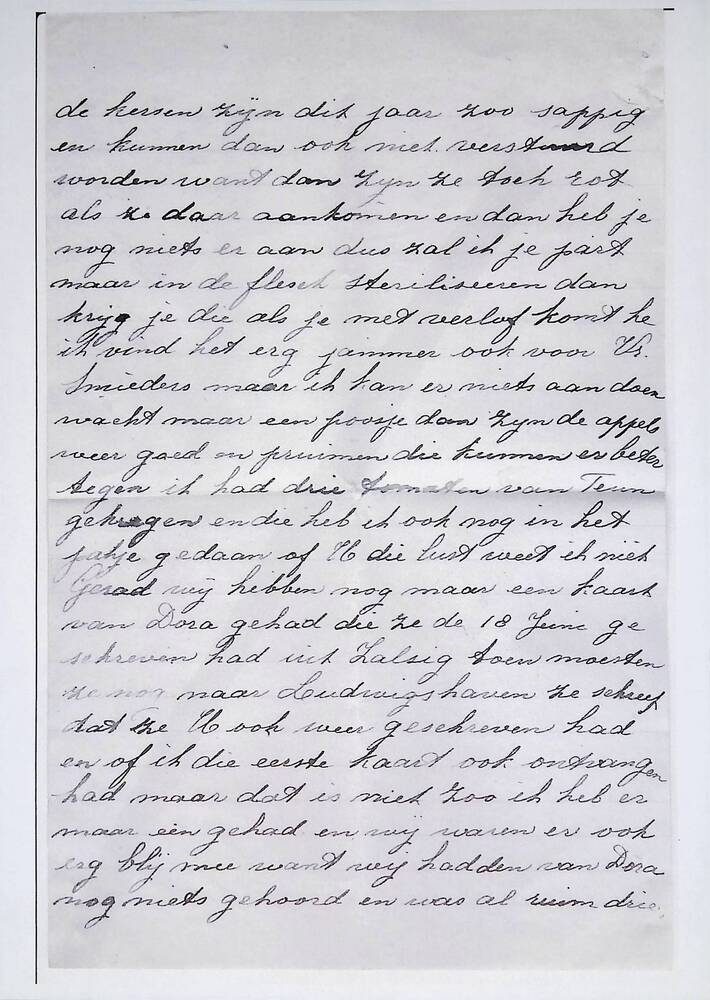 de kersen zijn dit jaar zoo sappig
en kunnen dan ook niet verstuurd
worden want dan zyn ze toch rot
als ze daar aankomen en dan heb je
nog niets er aan dus zal ik je part
maar in de flesch steriliseeren dan
kryg je die als je met verlof komt he
ik vind het erg jammer ook voor Vr.
Smieders maar ik kan er niets aan doen
wacht maar een poosje dan zyn de appels
weer goed en pruimen die kunnen er beter
tegen ik had drie tomaten van Teun
gekregen en die heb ik ook nog in het
pakje gedaan of U die lust weet ik niet
Gerad wij hebben nog maar een kaart
van Dora gehad die ze de 18 Juni ge
schreven had uit Zalsig toen moesten
ze nog naar Ludwigshaven ze schreef
dat ze U ook weer geschreven had
en of ik die eerste kaart ook ontvangen
had maar dat is niet zoo ik heb er
maar één gehad en wy waren er ook
erg blij mee want wy hadden van Dora
nog niets gehoord en was al ruim drie